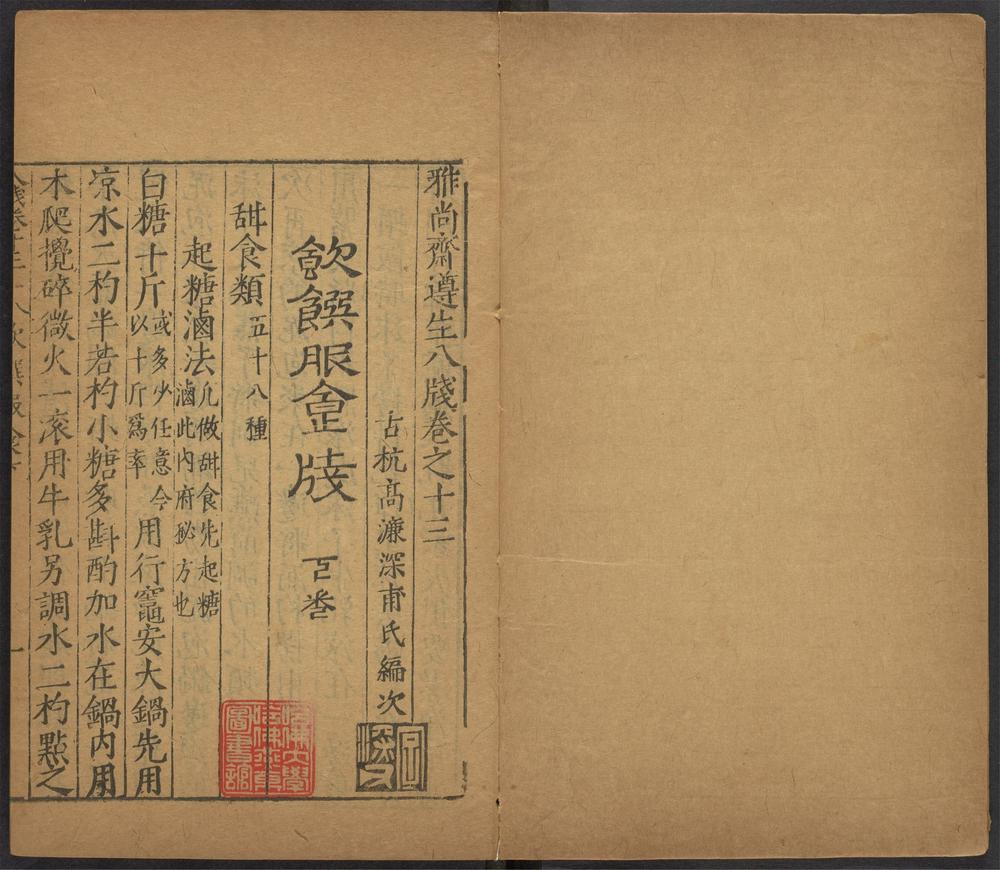 雅尚齋遵生八牋卷之十三
古杭高濂深甫氏編次
飲饌服食牋 下卷
甜食類 五十八種
起糖滷法 凡做甜食先起糖滷此内府秘方也
白糖十斤 或多少任意今以十斤爲率 用行竈安大鍋先用
凉水二杓半若杓小糖多斟酌加水在鍋内用
木爬攪碎微火一滚用牛乳另調水二杓點之
漢和圖書館